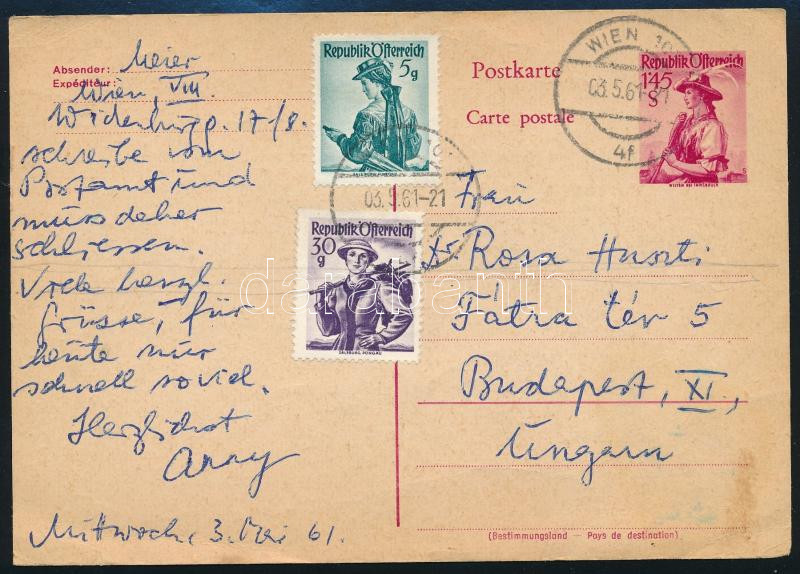 Absender: Meier
Expéditeur:
Wien, VIII
17/8.
schreibe vom
Postamt und
muss daher
schliessen.
Viele herzl.
Grüsse, für
heute nur
schnell soviel.
Herzlichst
Anny
Mittwoch, 3. Mai 61.
Republik Österreich
5g
03.5.61-21
Republik Österreich
30
g
SALZBURG, PONGAU
Postkarte
Carte postale
WIEN 10
03.5.61-21
4f
Republik Österreich
1.45
S
WILTEN BEI INNSBRUCK
Frau
Dr. Rosa Huszti
Fátra tér 5
Budapest, XI.,
Ungarn
(Bestimmungsland - Pays de destination)
darabanth